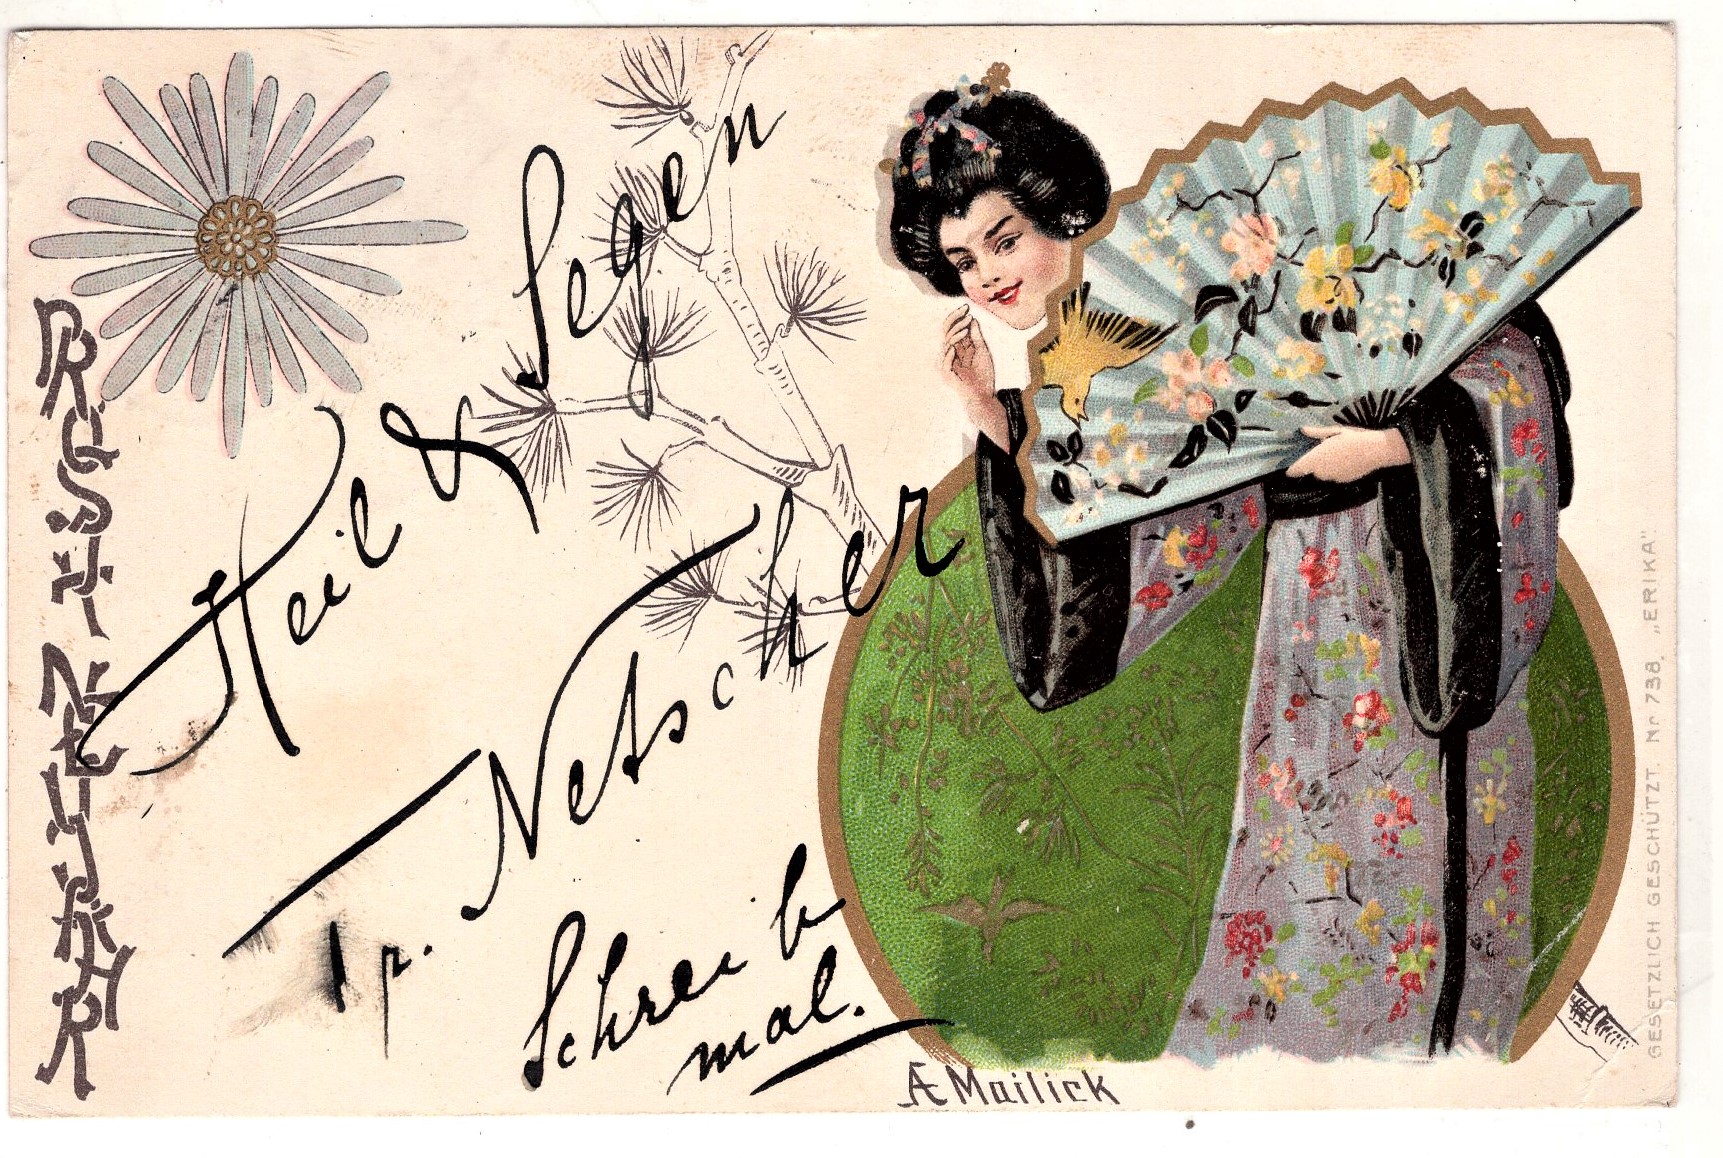 PROSIT NEUJAHR
Heil & Segen
Tr. Netscher
Schreib
mal.
Æ Mailick
GESETZLICH GESCHÜTZT. Nr. 738. „ERIKA"